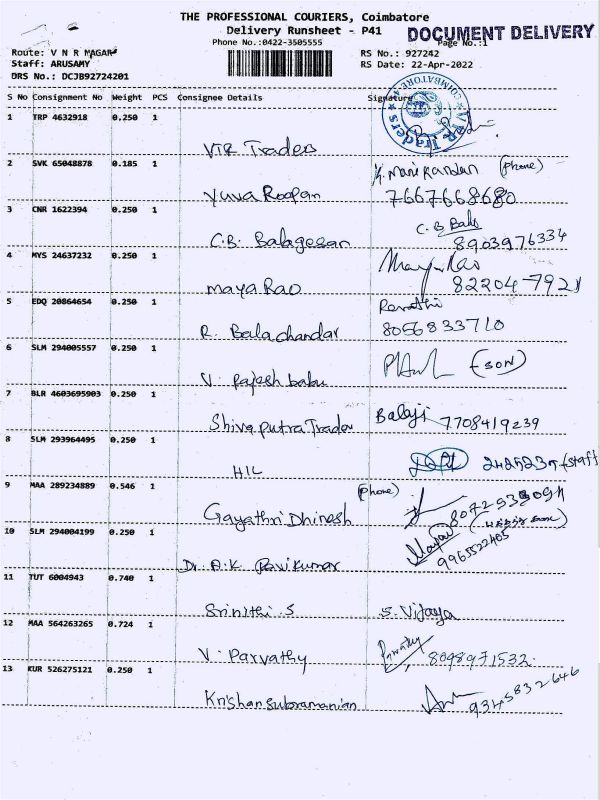 THE PROFESSIONAL COURIERS, Coimbatore
Delivery Runsheet - P41
DOCUMENT DELIVERY
Phone No.:0422-3505555
Page No.:1
Route: V N R NAGAR
RS No.: 927242
Staff: ARUSAMY
RS Date: 22-Apr-2022
DRS No.: DCJB92724201
S No Consignment No Weight PCS Consignee Details Signature
COIMBATORE
VTR Traders
1 TRP 4632918 0.250 1
VTR Traders
2 SVK 65048878 0.185 1
K. Manikandan (Phone)
Yuva Roopan 7667668680
3 CNR 1622394 0.250 1
C.B Balu
C.B. Balagesan 8903976334
4 MYS 24637232 0.250 1
Maya Rao
Maya Rao 82204-7921
5 EDQ 20864654 0.250 1
Revathi
R. Balachandar 8056833710
6 SLM 294005557 0.250 1
V. Rajesh babu (SON)
7 BLR 4603695903 0.250 1
Shivaputra Trader Balaji 7708419239
8 SLM 293964495 0.250 1
HIL (staff
9 MAA 289234889 0.546 1
(Phone)
Gayathri Dhinesh
10 SLM 294004199 0.250 1
9965522405
Dr. A.K. Ravikumar
11 TUT 6004943 0.740 1
Srinithi .S S. Vijaya
12 MAA 564263265 0.724 1
V. Parvathy 8098971532
13 KUR 526275121 0.250 1
Krishan Subramanian 9345832646